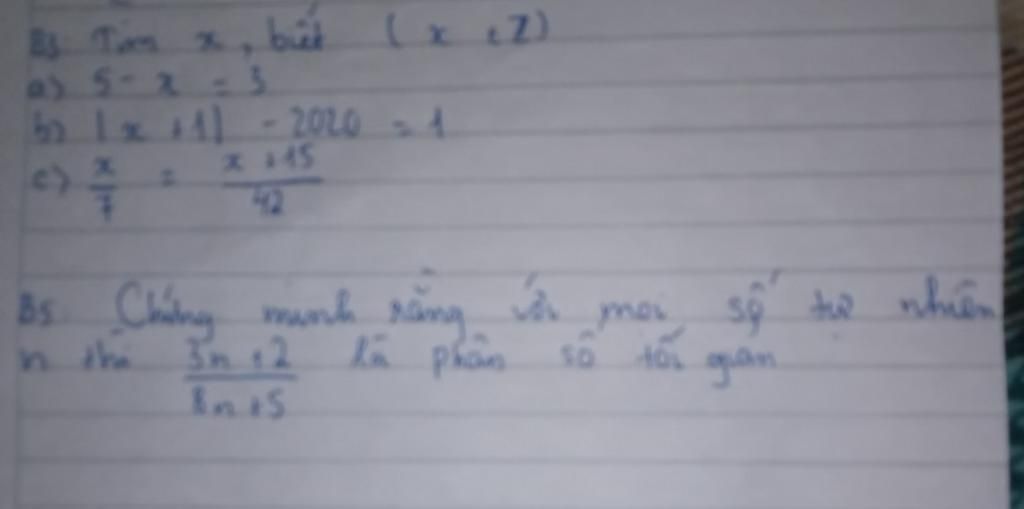 B3 Tìm x, biết ( x ∈ Z)
a) 5 - x = 3
b) |x + 1| - 2020 = 1
c) x/7 = x + 15/42
B5 Chứng minh rằng với mọi số tự nhiên
n thì 3n + 2/8n + 5 là phân số tối giản